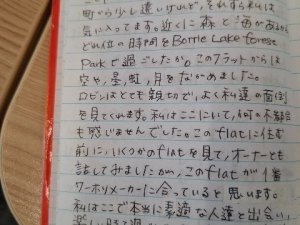 町から少し遠いけれど、それすら私は
気に入ってます。近くに森と海があるから
どれ位の時間をBorrie Lake forest
Parkで過ごしたか。このフラットからは
空や、星、虹、月をながめました。
ロビンはとても親切で、よく私達の面倒
を見てくれます。私はここにいて、何の不都合
も感じませんでした。このflatに住む
前に、いくつかのflatを見て、オーナーとも
話してみましたが、このflatが1番
ワーホリメーカーに合っていると思います。
私はここで本当に素適な人達と出会い、
楽しい時を過